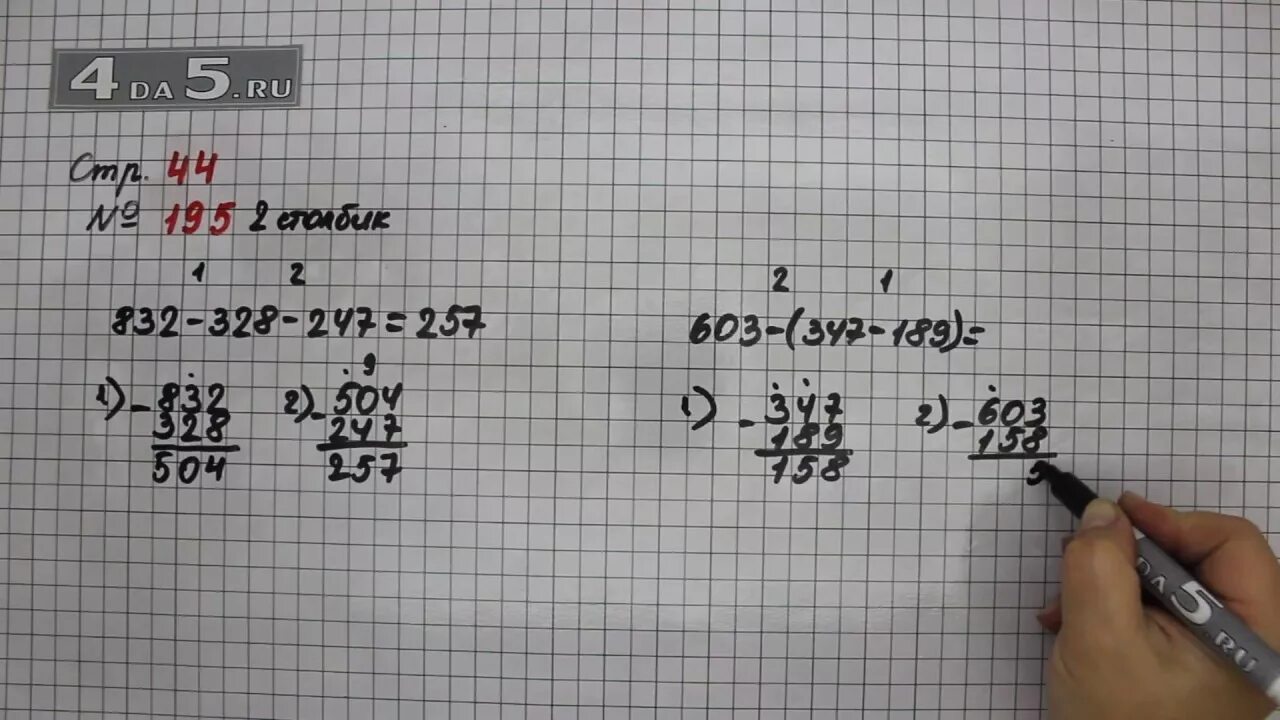 4DA5.RU
Стр. 44
№ 195 2 столбик
1 2
832-328-247=257
1) -832
328
504
9
2) -504
247
257
2 1
603-(347-189)=
1) -347
189
158
2) -603
158
5
DA5.RU